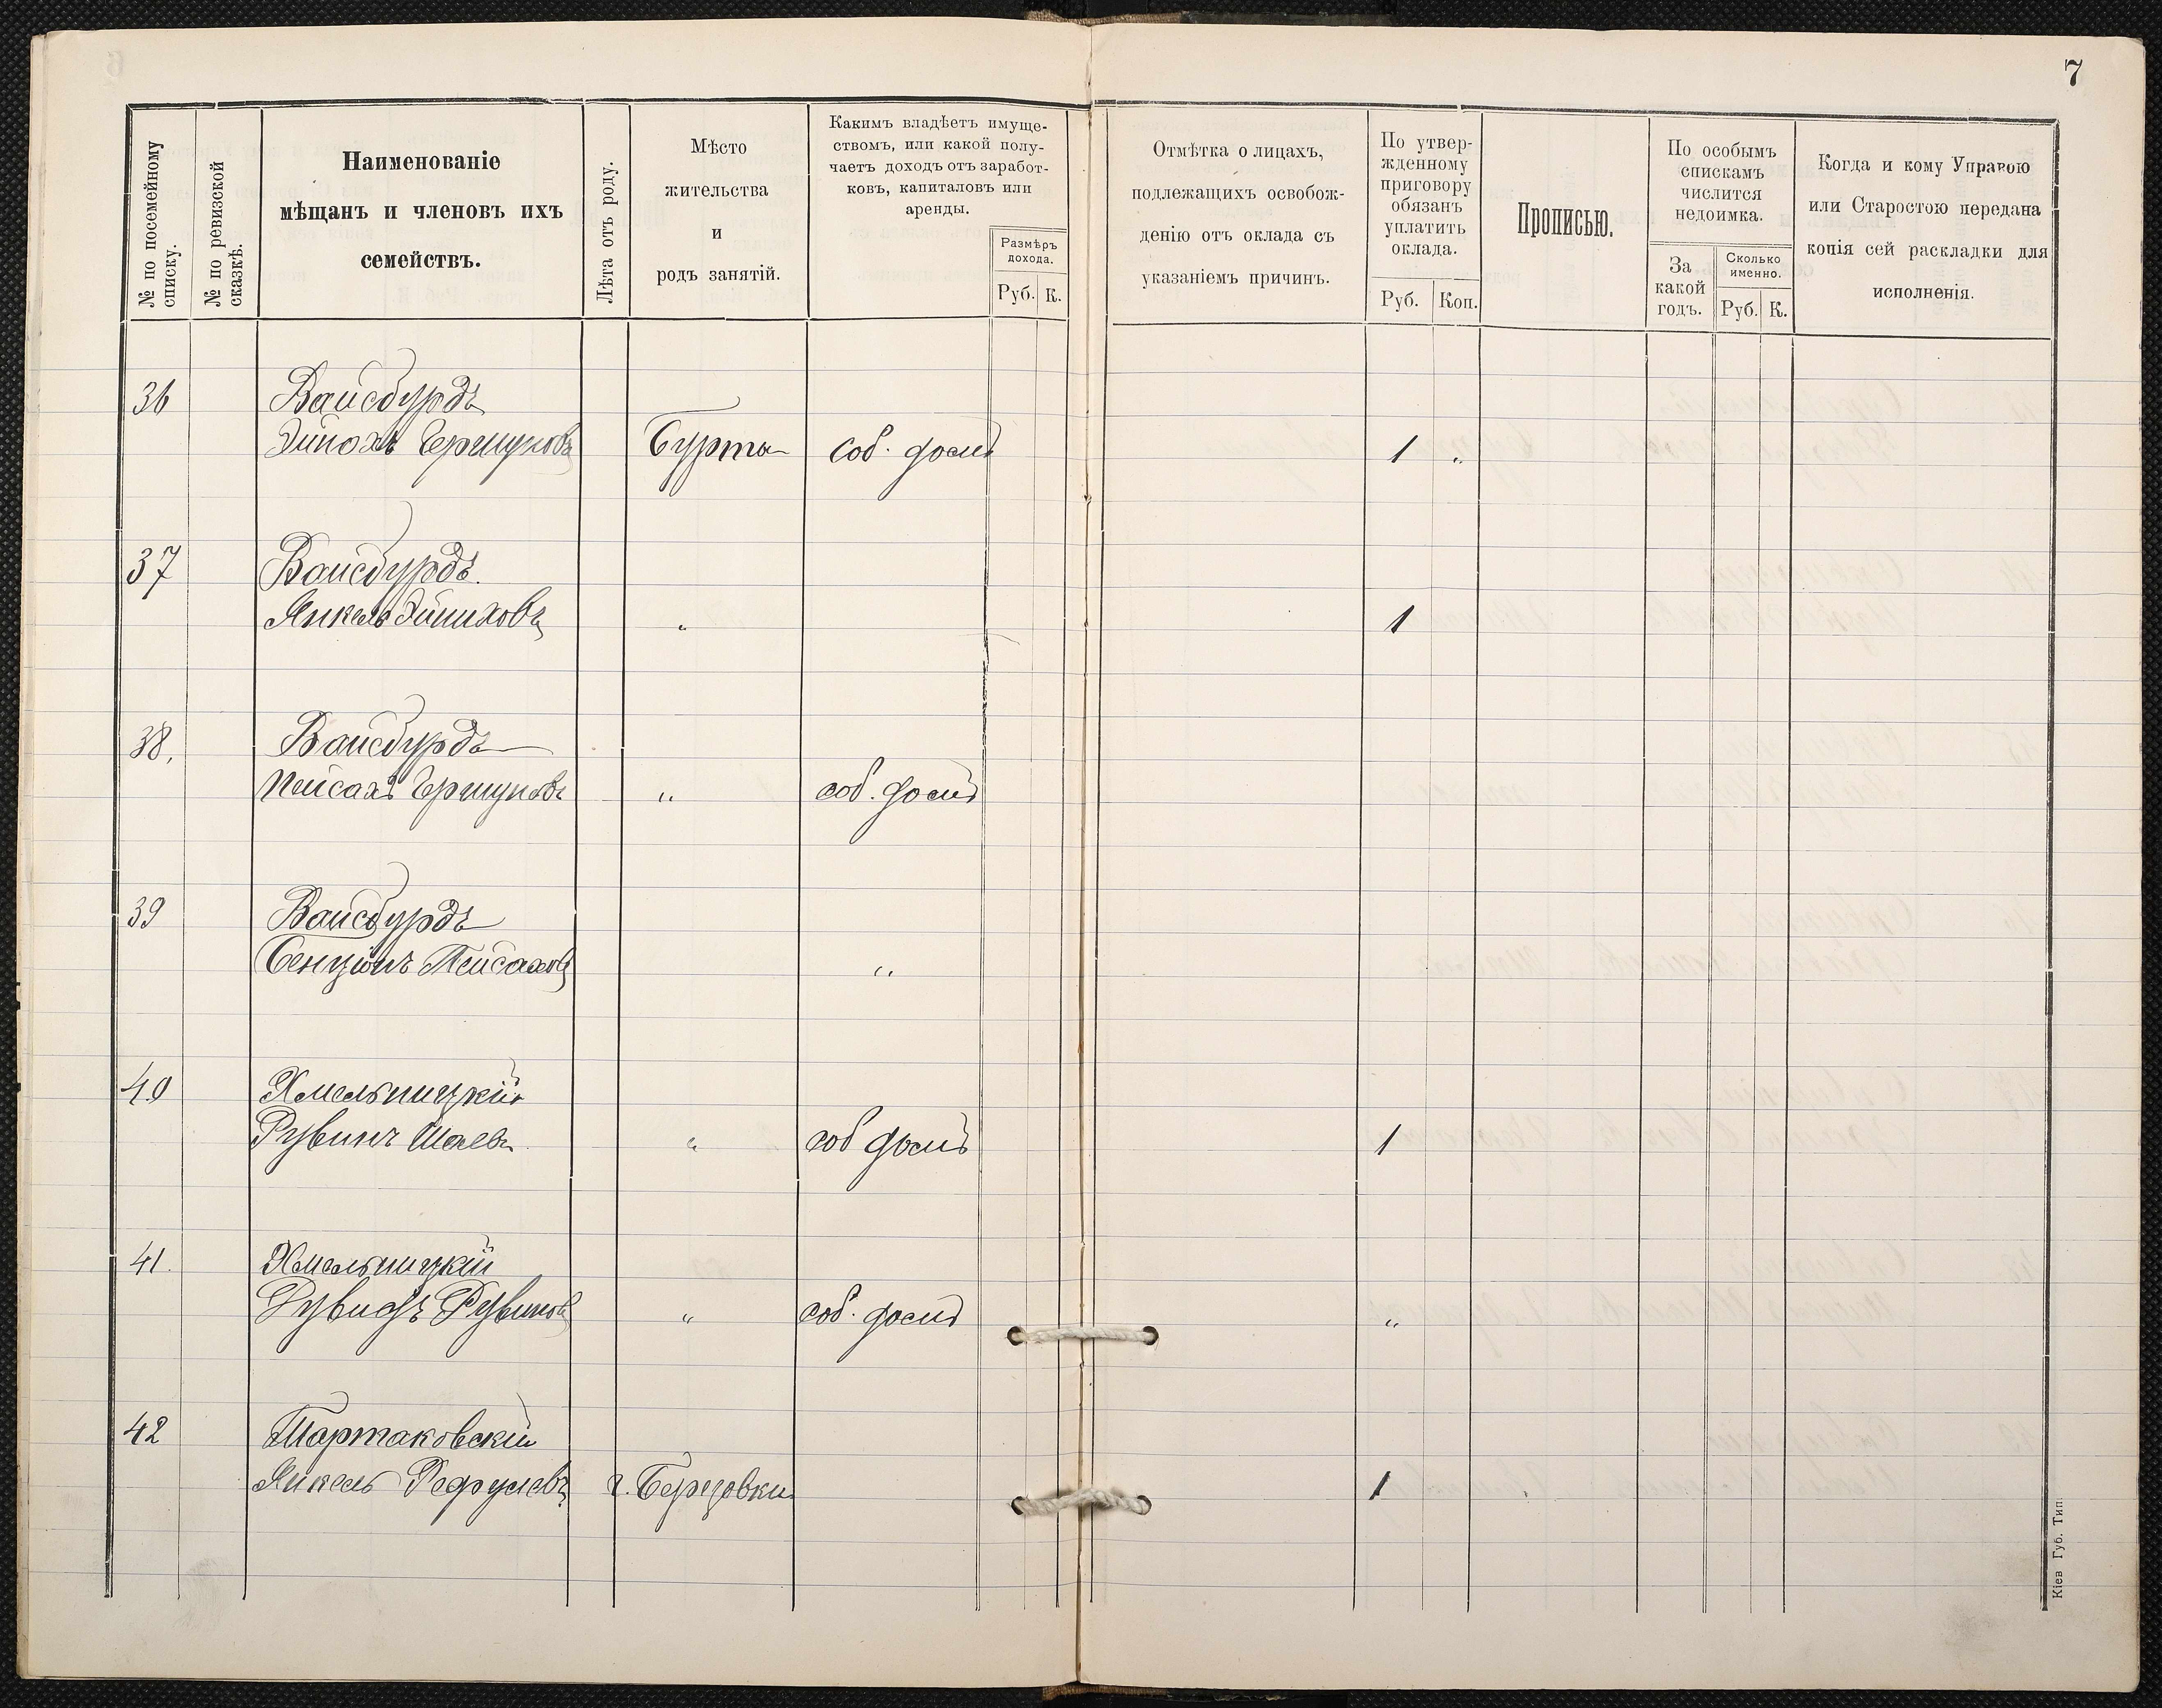 7
№ по посемейному списку.
№ по ревизской сказкѣ.
Наименованіе
мѣщанъ и членовъ ихъ
семействъ.
Лѣта отъ роду.
Мѣсто
жительства
и
родъ занятій.
Какимъ владѣетъ имуще-
ствомъ, или какой полу-
чаетъ доходъ отъ заработ-
ковъ, капиталовъ или
аренды.
Размѣръ
дохода.
Руб. К.
Отмѣтка о лицахъ,
подлежащихъ освобож-
денію отъ оклада съ
указаніемъ причинъ.
По утвер-
жденному
приговору
обязанъ
уплатить
оклада.
Руб. Коп.
Прописью.
По особымъ
спискамъ
числится
недоимка.
За
какой
годъ.
Сколько
именно.
Руб. К.
Когда и кому Управою
или Старостою передана
копія сей раскладки для
исполненія.
36 Вайсбурдъ
Эйнохъ Гершуновъ Бурта соб. домъ 1 "
37 Вайсбурдъ.
Янкель Эйниховъ " 1
38. Вайсбурдъ
Пейсахъ Гершуновъ " соб. домъ
39 Вайсбурдъ
Бенціонъ Пейсаховъ "
40 Хмельницкій
Рувинъ Шаевъ " соб домъ 1
41. Хмельницкій
Рувиновъ " соб. домъ "
42 Тартаковскій
Янкель г. 1
Кіев Губ. Тип.